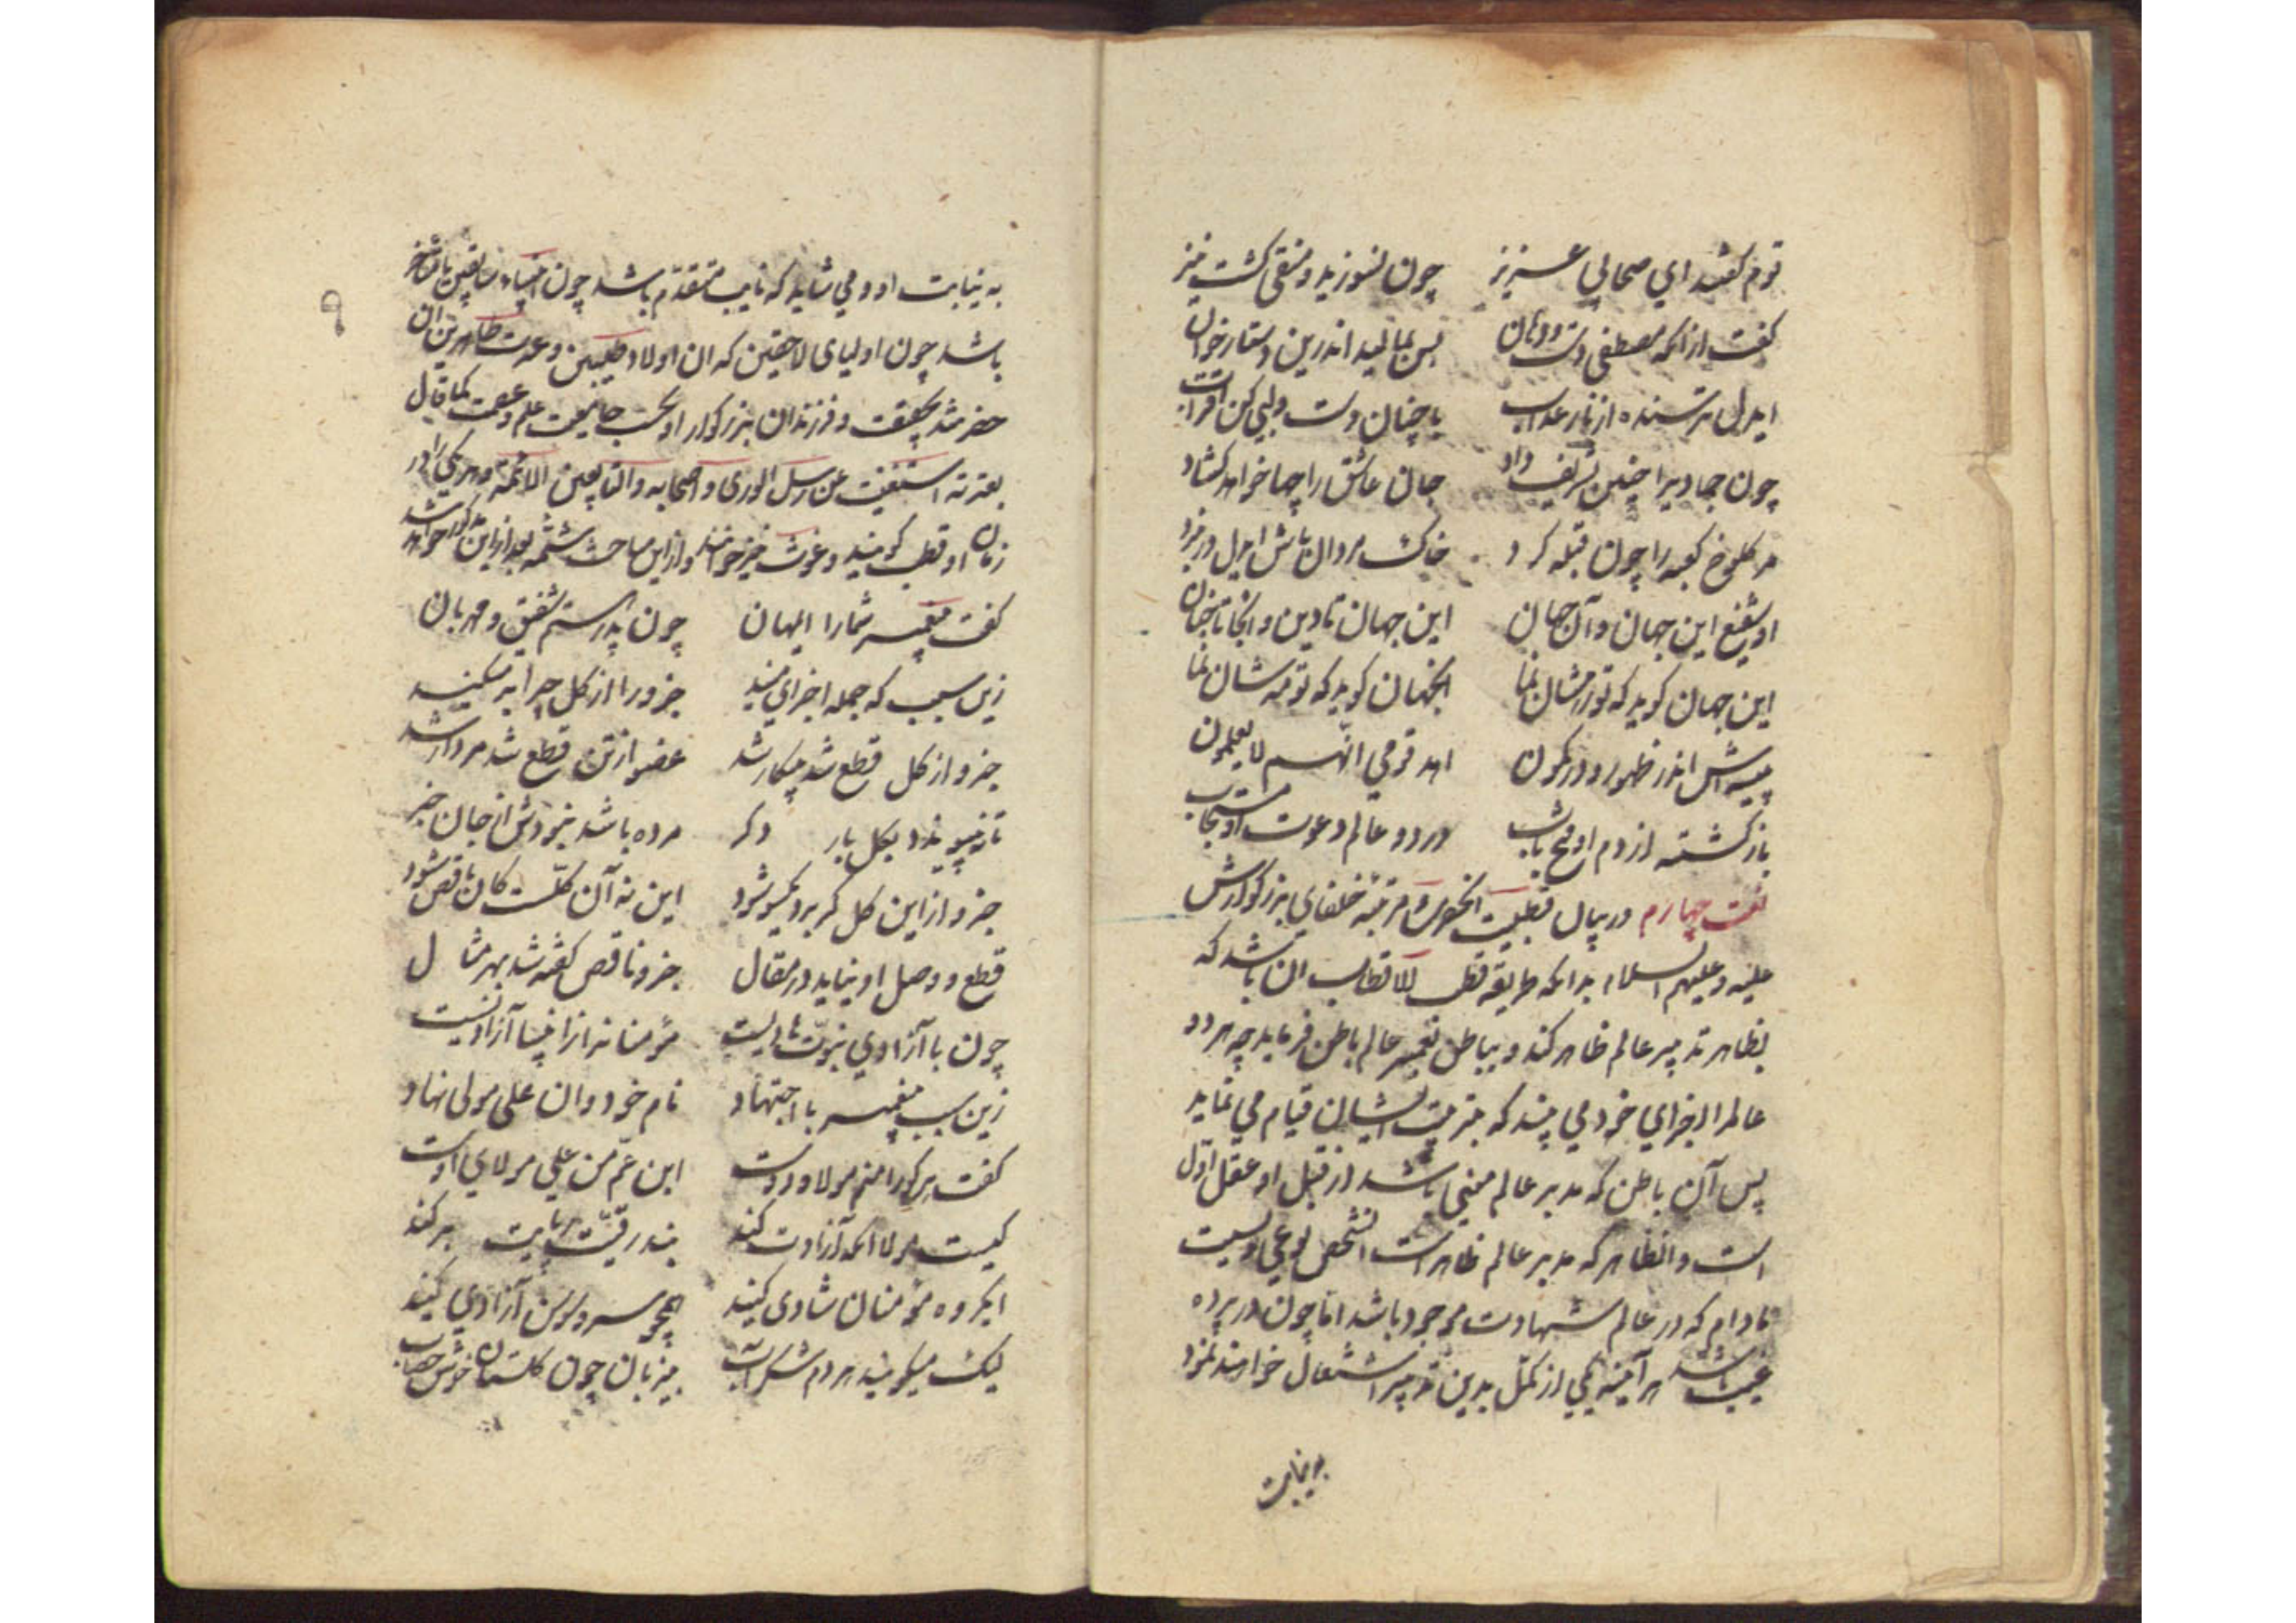 قوم گفتند ای صحابی عزیز چون نسوزید و منقی گشت نیز
گفت زانکه مصطفی دست و دهان بس بمالید اندرین دستار خوان
ایدل ترسنده از نار عذاب با چنان دست و لبی کن اقتراب
چون جمادیرا چنین تشریف داد جان عاشق را چها خواهد گشاد
مر کلوخ کعبه را چون قبله کرد خاک مردان باش ایدل در نبرد
او شفیع این جهان و آن جهان این جهان تا دین و انجا تا جنان
این جهان گوید که تو رهشان نما انجهان گوید که تو مه شان نما
پیشه اش اندر ظهور و در کمون اهد قومی انّهم لا یعلمون
باز گشته از دم او هر دو باب در دو عالم دعوت او مستجاب
نعت چهارم در بیان قطبیت انحضرت و مرتبه خلفای بزرگوارش
علیه و علیهم السلام بدانکه طریقه قطب الاقطاب ان باشد که
بظاهر تدبیر عالم ظاهر کند و بباطن تعمیر عالم باطن فرماید چه هر دو
عالمرا اجزای خود می بیند که بتربیت ایشان قیام می نماید
پس آن باطن که مدبر عالم معنی باشد از قبل او عقل اوّل
است و انظاهر که مدبر عالم ظاهر است انشخص نوعی اوست
مادام که در عالم شهادت موجود باشد امّا چون در پرده
غیب باشد هر آینه یکی از کمّل بدین تدبیر اشتغال خواهند نمود
به نیابت
٩
به نیابت او و می شاید که نایب متقدّم باشد چون انبیاء سابقین یا متاخر
باشد چون اولیای لاحقین که ان اولاد طیبین و عترت طاهرین ان
حضرتند بحقیقت و فرزندان بزرگوار او بحسب جامعیت علم و عصمت کما قال
بعترته استغنیت عن رسل الوری و اصحابه و التابعین الائمة و هر یکی را در
زمان او قطب گویند و غوث نیز خوانند و ازین مباحث شمّه بعد ازین مذکور خواهد شد
گفت پیغمبر شما را ایمهان چون پدر هستم شفیق و مهربان
زین سبب که جمله اجزای منید جزو را از کل چرا بر میکنید
جزو از کل قطع شد بیکار شد عضو از تن قطع شد مردار شد
تا نپیوندد بکل بار دگر مرده باشد نبودش از جان خبر
جزو ازین کل گر برد یکسو شود این نه آن کلّست کان ناقص شود
قطع و وصل او نیاید در مقال جزو ناقص گفته شد بهر مثال
چون بآزادی نبوّت هادیست مؤمنانرا ز انبیا آزادیست
زین سبب پیغمبر با اجتهاد نام خود وان علی مولی نهاد
گفت هر کورا منم مولا و دوست ابن عمّ من علی مولای اوست
کیست مولا انکه آزادت کند بند رقیّت ز پایت بر کند
ای گروه مؤمنان شادی کنید همچو سرو و سوسن آزادی کنید
لیک میگویید هر دم شکر آب بیزبان چون گلستان خوش خضاب